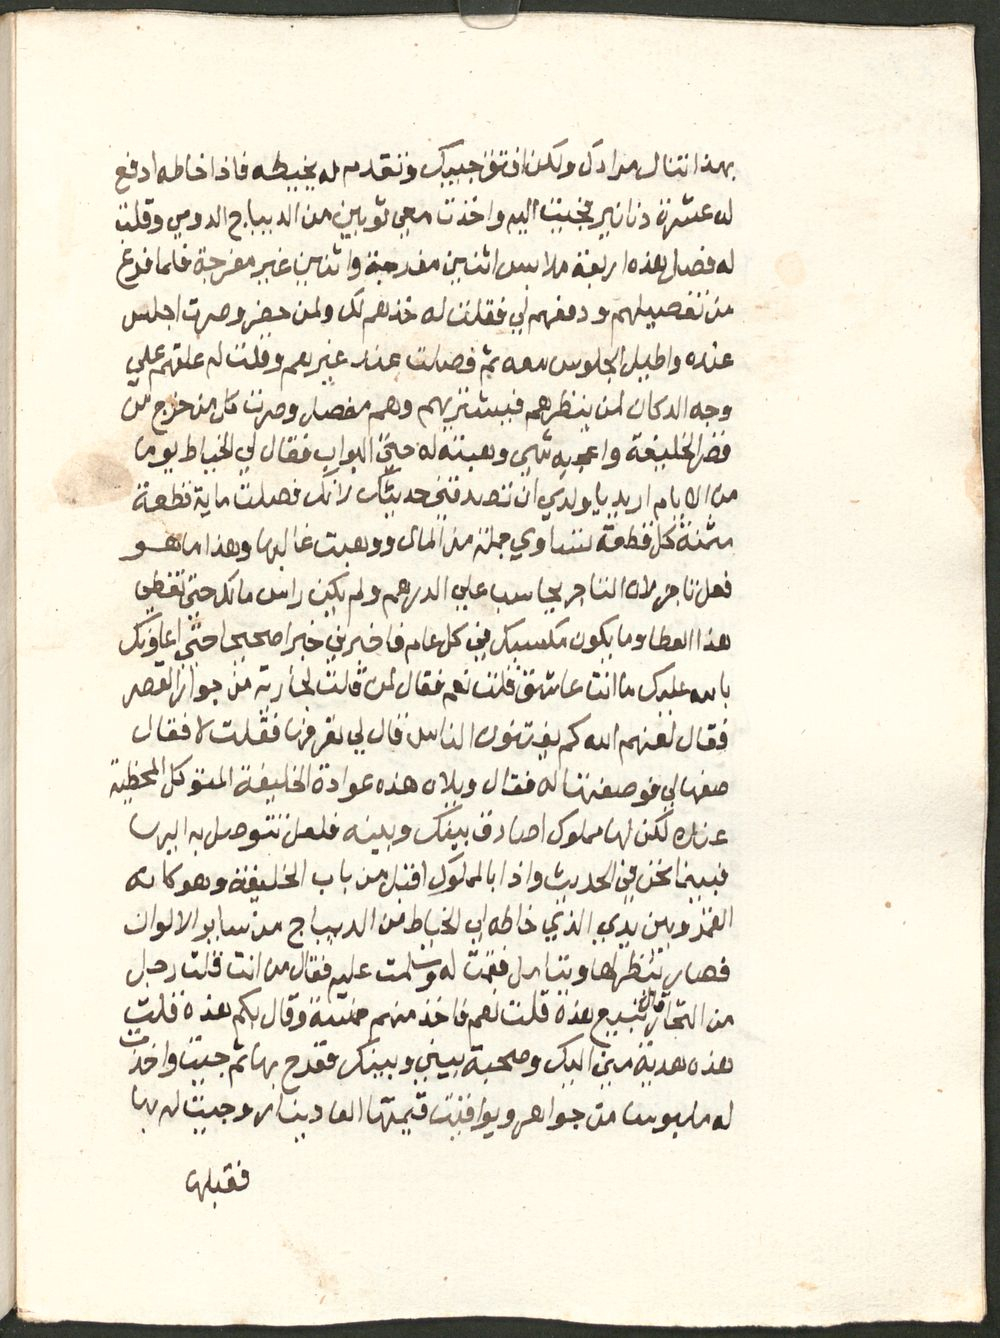 بهذا تنال مرادك ولكن افتق جيبك وتقدم له يخيطه فاذا خاطه ادفع
له عشرة دنانير فجيت اليه واخذت معي ثوبين من الديباج الرومي وقلت
له فصل هذه اربعة ملابس اثنين مفرجة واثنين غير مفرجة فلما فرغ
من تفصيلهم ودفعهم لي فقلت له خذهم لك ولمن حضر وصرت اجلس
عنده واطيل الجلوس معه ثم فصلت عنده غيرهم وقلت له علقهم علي
وجه الدكان لمن ينظرهم فيشتريهم وهم مفصله وصرت كل من خرج من
قصر الخليفة واعجبه شي وهبته له حتي البواب فقال لي الخياط يوما
من الايام اريد يا ولدي ان تصدقني حديثك لانك فصلت ماية قطعة
مثمنة كل قطعة تساوي جملة من المال ووهبت غالبها وهذا ما هو
فعل تاجر لان التاجر يحاسب علي الدرهم ولم يكن راس مالك حتي تعطي
هذا العطا وما يكون مكسبك في كل عام فاخبرني خبرا صحيحا حتي اعاونك
بالله عليك ما انت عاشق قلت نعم فقال لمن قلت لجارية من جوار القصر
فقال لعنهم الله كم يفتنون الناس قال لي تعرفها فقلت لا فقال
صفها لي فوصفتها له فقال ويلاه هذه عوادة الخليفة المتوكل المحظية
عنده لكن لها مملوك اصادق بينك وبينه فلعل تتوصل به اليها
فبينما نحن في الحديث واذا بالمملوك اقبل من باب الخليفة وهو كانه
القمر وبين يدي الذي خاطه لي الخياط من الديباج من ساير الالوان
فصار ينظرها ويتامل فقمت له وسلمت عليه فقال من انت قلت رجل
من التجار قال تبيع هذه قلت نعم فاخذ منهم خمسة وقال بكم هذه قلت
هذه هدية مني اليك وصحبة بيني وبينك ففرح بها ثم جيت واخذت
له ملبوسا من جواهر ويواقيت قيمتها الفا دينار وجيت له بها
فقبلها